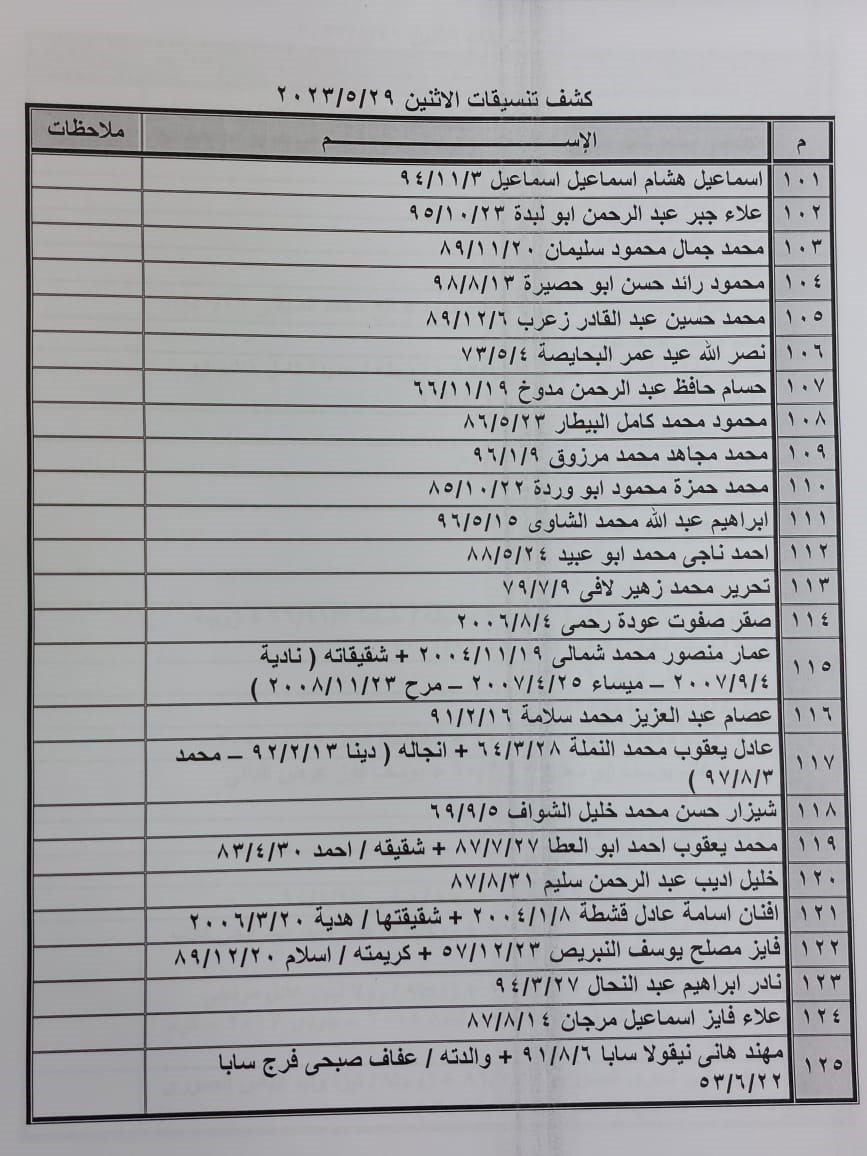 كشف تنسيقات الاثنين ٢٠٢٣/٥/٢٩
م الإســـــم ملاحظات
١٠١ اسماعيل هشام اسماعيل اسماعيل ٩٤/١١/٣
١٠٢ علاء جبر عبد الرحمن ابو لبدة ٩٥/١٠/٢٣
١٠٣ محمد جمال محمود سليمان ٨٩/١١/٢٠
١٠٤ محمود رائد حسن ابو حصيرة ٩٨/٨/١٣
١٠٥ محمد حسين عبد القادر زعرب ٨٩/١٢/٦
١٠٦ نصر الله عيد عمر البحايصة ٧٣/٥/٤
١٠٧ حسام حافظ عبد الرحمن مدوخ ٦٦/١١/١٩
١٠٨ محمود محمد كامل البيطار ٨٦/٥/٢٣
١٠٩ محمد مجاهد محمد مرزوق ٩٦/١/٩
١١٠ محمد حمزة محمود ابو وردة ٨٥/١٠/٢٢
١١١ ابراهيم عبد الله محمد الشاوى ٩٦/٥/١٥
١١٢ احمد ناجى محمد ابو عبيد ٨٨/٥/٢٤
١١٣ تحرير محمد زهير لافى ٧٩/٧/٩
١١٤ صقر صفوت عودة رحمى ٢٠٠٦/٨/٤
١١٥ عمار منصور محمد شمالى ٢٠٠٤/١١/١٩ + شقيقاته ( نادية
٢٠٠٧/٩/٤ – ميساء ٢٠٠٧/٤/٢٥ – مرح ٢٠٠٨/١١/٢٣ )
١١٦ عصام عبد العزيز محمد سلامة ٩١/٢/١٦
١١٧ عادل يعقوب محمد النملة ٦٤/٣/٢٨ + انجاله ( دينا ٩٢/٢/١٣ – محمد
٩٧/٨/٣ )
١١٨ شيزار حسن محمد خليل الشواف ٦٩/٩/٥
١١٩ محمد يعقوب احمد ابو العطا ٨٧/٧/٢٧ + شقيقه / احمد ٨٣/٤/٣٠
١٢٠ خليل اديب عبد الرحمن سليم ٨٧/٨/٣١
١٢١ افنان اسامة عادل قشطة ٢٠٠٤/١/٨ + شقيقتها / هدية ٢٠٠٦/٣/٢٠
١٢٢ فايز مصلح يوسف النبريص ٥٧/١٢/٢٣ + كريمته / اسلام ٨٩/١٢/٢٠
١٢٣ نادر ابراهيم عبد النحال ٩٤/٣/٢٧
١٢٤ علاء فايز اسماعيل مرجان ٨٧/٨/١٤
١٢٥ مهند هانى نيقولا سابا ٩١/٨/٦ + والدته / عفاف صبحى فرج سابا
٥٣/٦/٢٢